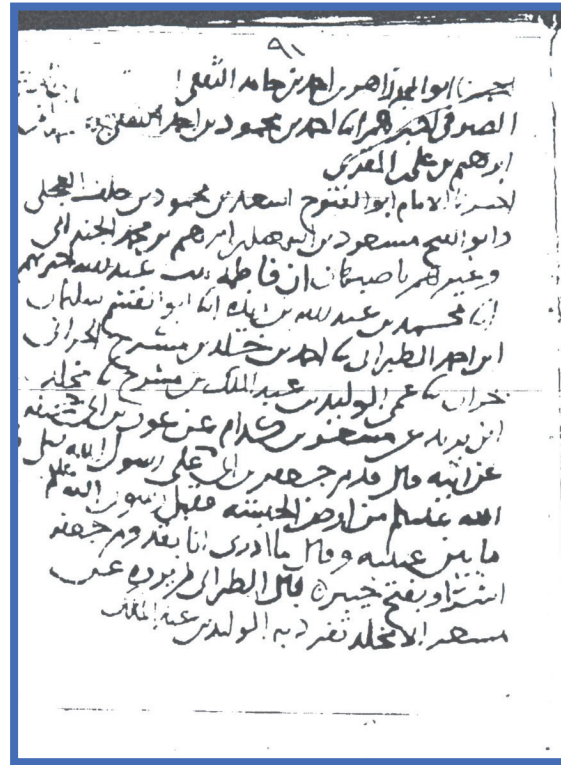 ٩١
ابو المجد زاهر بن احمد بن حامد الثقفى
الصوفى اخبرهم ابنا احمد بن محمود بن احمد الثقفى
ابرهيم بن على المقرى
اخبرنا الامام ابو الفتوح اسعد بن محمود بن خلف العجلى
وابو مسعود بن ابرهيم بن محمد الجندانى
وغيرهم باصبهان ان فاطمه بنت عبد الله اخبرتهم
ابنا محمد بن عبد الله بن ابنا ابو القسم سليمان
ابن احمد الطبرانى ثنا احمد بن خلد بن مسرح الحرانى
ثنا عمى الوليد بن عبد الملك بن مسرح ثنا مخلد
ابن يزيد عن مسعر بن كدام عن عون بن ابى جحيفه
عن ابيه قال قدم جعفر بن ابى على رسول الله صلى
الله عليه من ارض الحبشه فقبل رسول الله
ما بين عينيه وقال ما ادرى انا بقدوم جعفر
اسر او بفتح خيبر قال الطبرانى لم يروه عن
مسعر الا مخلد تفرد به الوليد بن عبد الملك